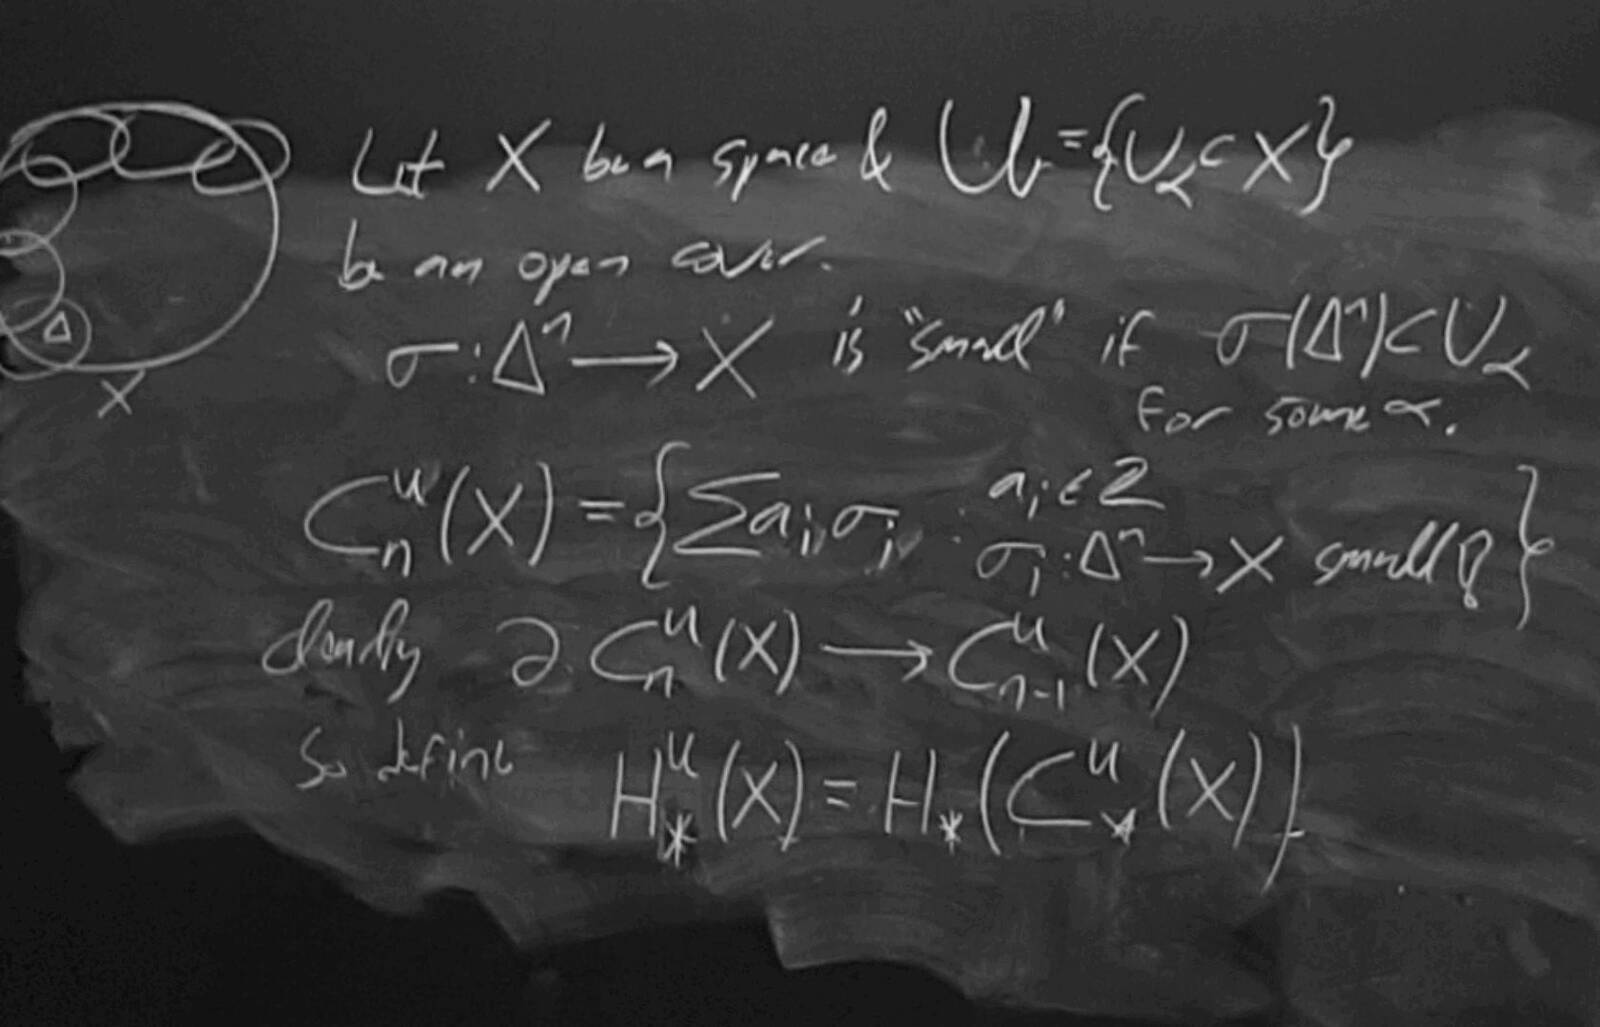 Let X be a space & 𝒰 = {U_α ⊂ X}
be an open cover.
σ : Δⁿ → X is "small" if σ(Δⁿ) ⊂ U_α
for some α.
C_n^𝒰(X) = { Σ a_i σ_i : a_i ∈ Z
σ_i : Δⁿ → X small }
clearly ∂: C_n^𝒰(X) → C_{n-1}^𝒰(X)
So define H_*^𝒰(X) = H_*(C_*^𝒰(X))
Δ
X